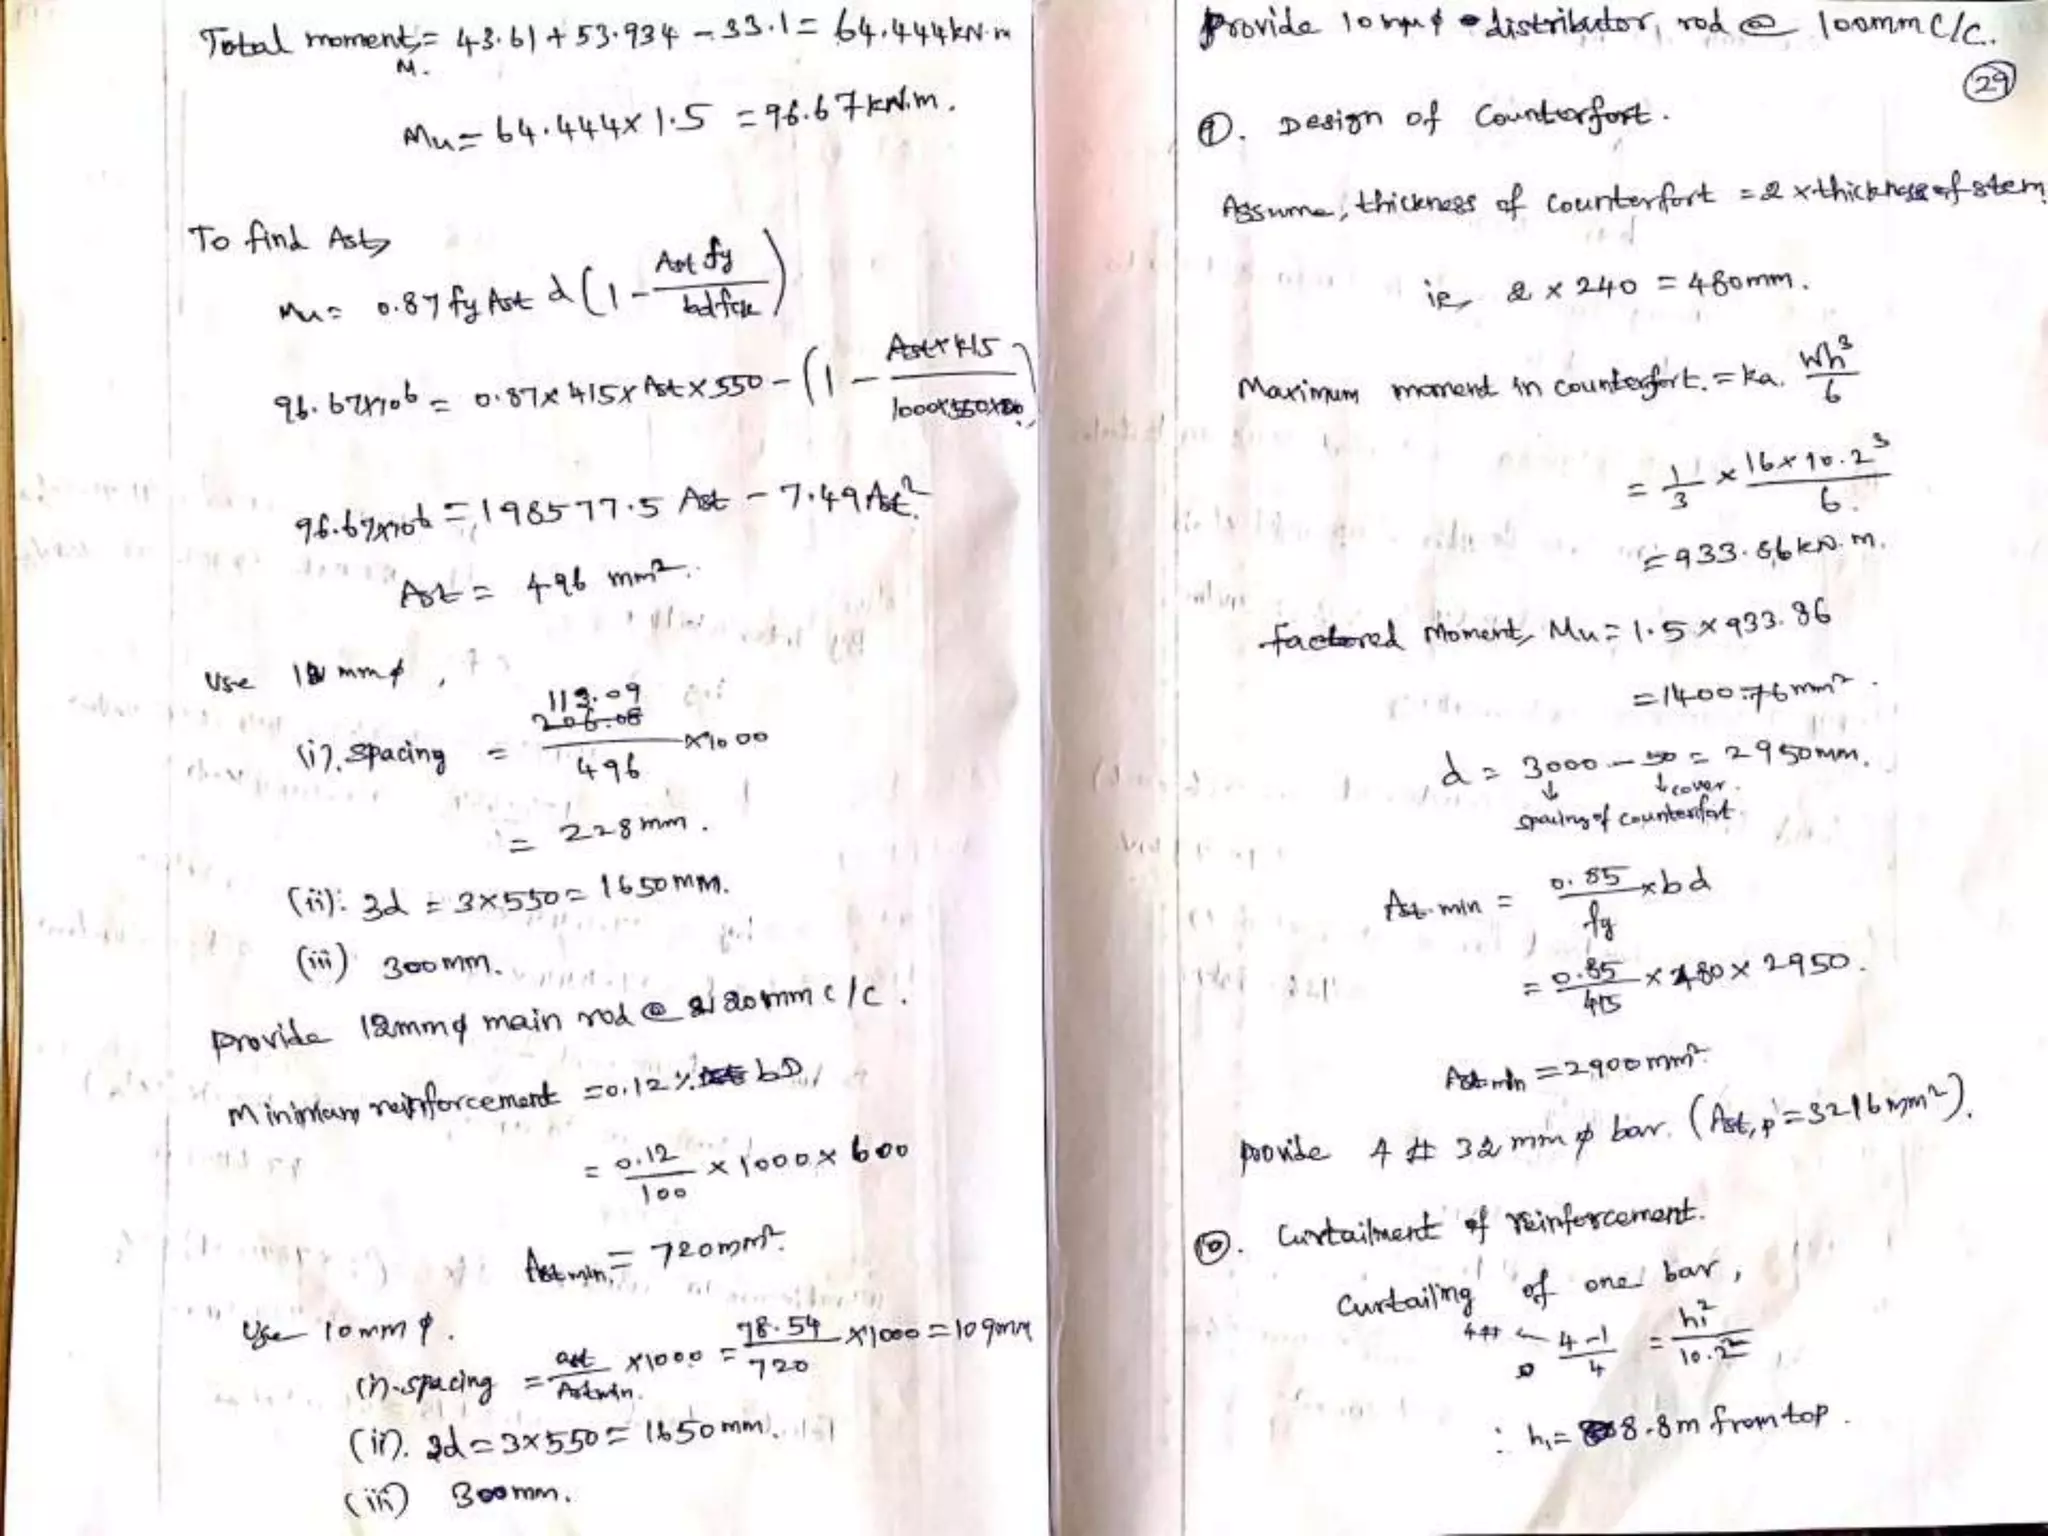 Total moment, M. = 43.61 + 53.934 - 33.1 = 64.444 kN.m
Mu = 64.444 x 1.5 = 96.67 kN.m.
To find Ast,
Mu = 0.87 fy Ast d (1 - Ast fy / bd fck)
96.67x10^6 = 0.87 x 415 x Ast x 550 - (1 - Ast x 415 / 1000x550x20)
96.67x10^6 = 198577.5 Ast - 7.49 Ast^2.
Ast = 496 mm².
Use 12 mm φ,
(i). spacing = 113.09 / 496 x1000
= 228 mm.
(ii): 3d = 3x550 = 1650 mm.
(iii) 300 mm.
Provide 12mm φ main rod @ 220 mm c/c.
Minimum reinforcement = 0.12 % bD
= 0.12 / 100 x 1000 x 600
Ast min. = 720 mm².
Use 10 mm φ.
(i). spacing = ast / Astmin. x1000 = 78.54 / 720 x1000 = 109mm
(ii). 3d = 3x550 = 1650 mm.
(iii) 300 mm.
Provide 10 mm φ distributor, rod @ 100mm c/c.
29
9. Design of Counterfort.
Assume, thickness of counterfort = 2 x thickness of stem.
ie, 2 x 240 = 480mm.
Maximum moment in counterfort. = ka. Wh³ / 6
= 1/3 x 16 x 10.2³ / 6.
= 933.86 kN.m.
Factored Moment, Mu = 1.5 x 933.86
= 1400.76 mm².
d = 3000 - 50 = 2950mm.
↓ ↓ cover.
spacing of counterfort
Ast.min = 0.85 / fy x bd
= 0.85 / 415 x 480 x 2950.
Ast min = 2900 mm²
provide 4 # 32 mm φ bar. (Ast,p = 3216 mm²).
10. Curtailment of reinforcement.
Curtailing of one bar,
4 # ← 4-1 / 4 = h₁² / 10.2²
∴ h₁ = 8.8m from top.